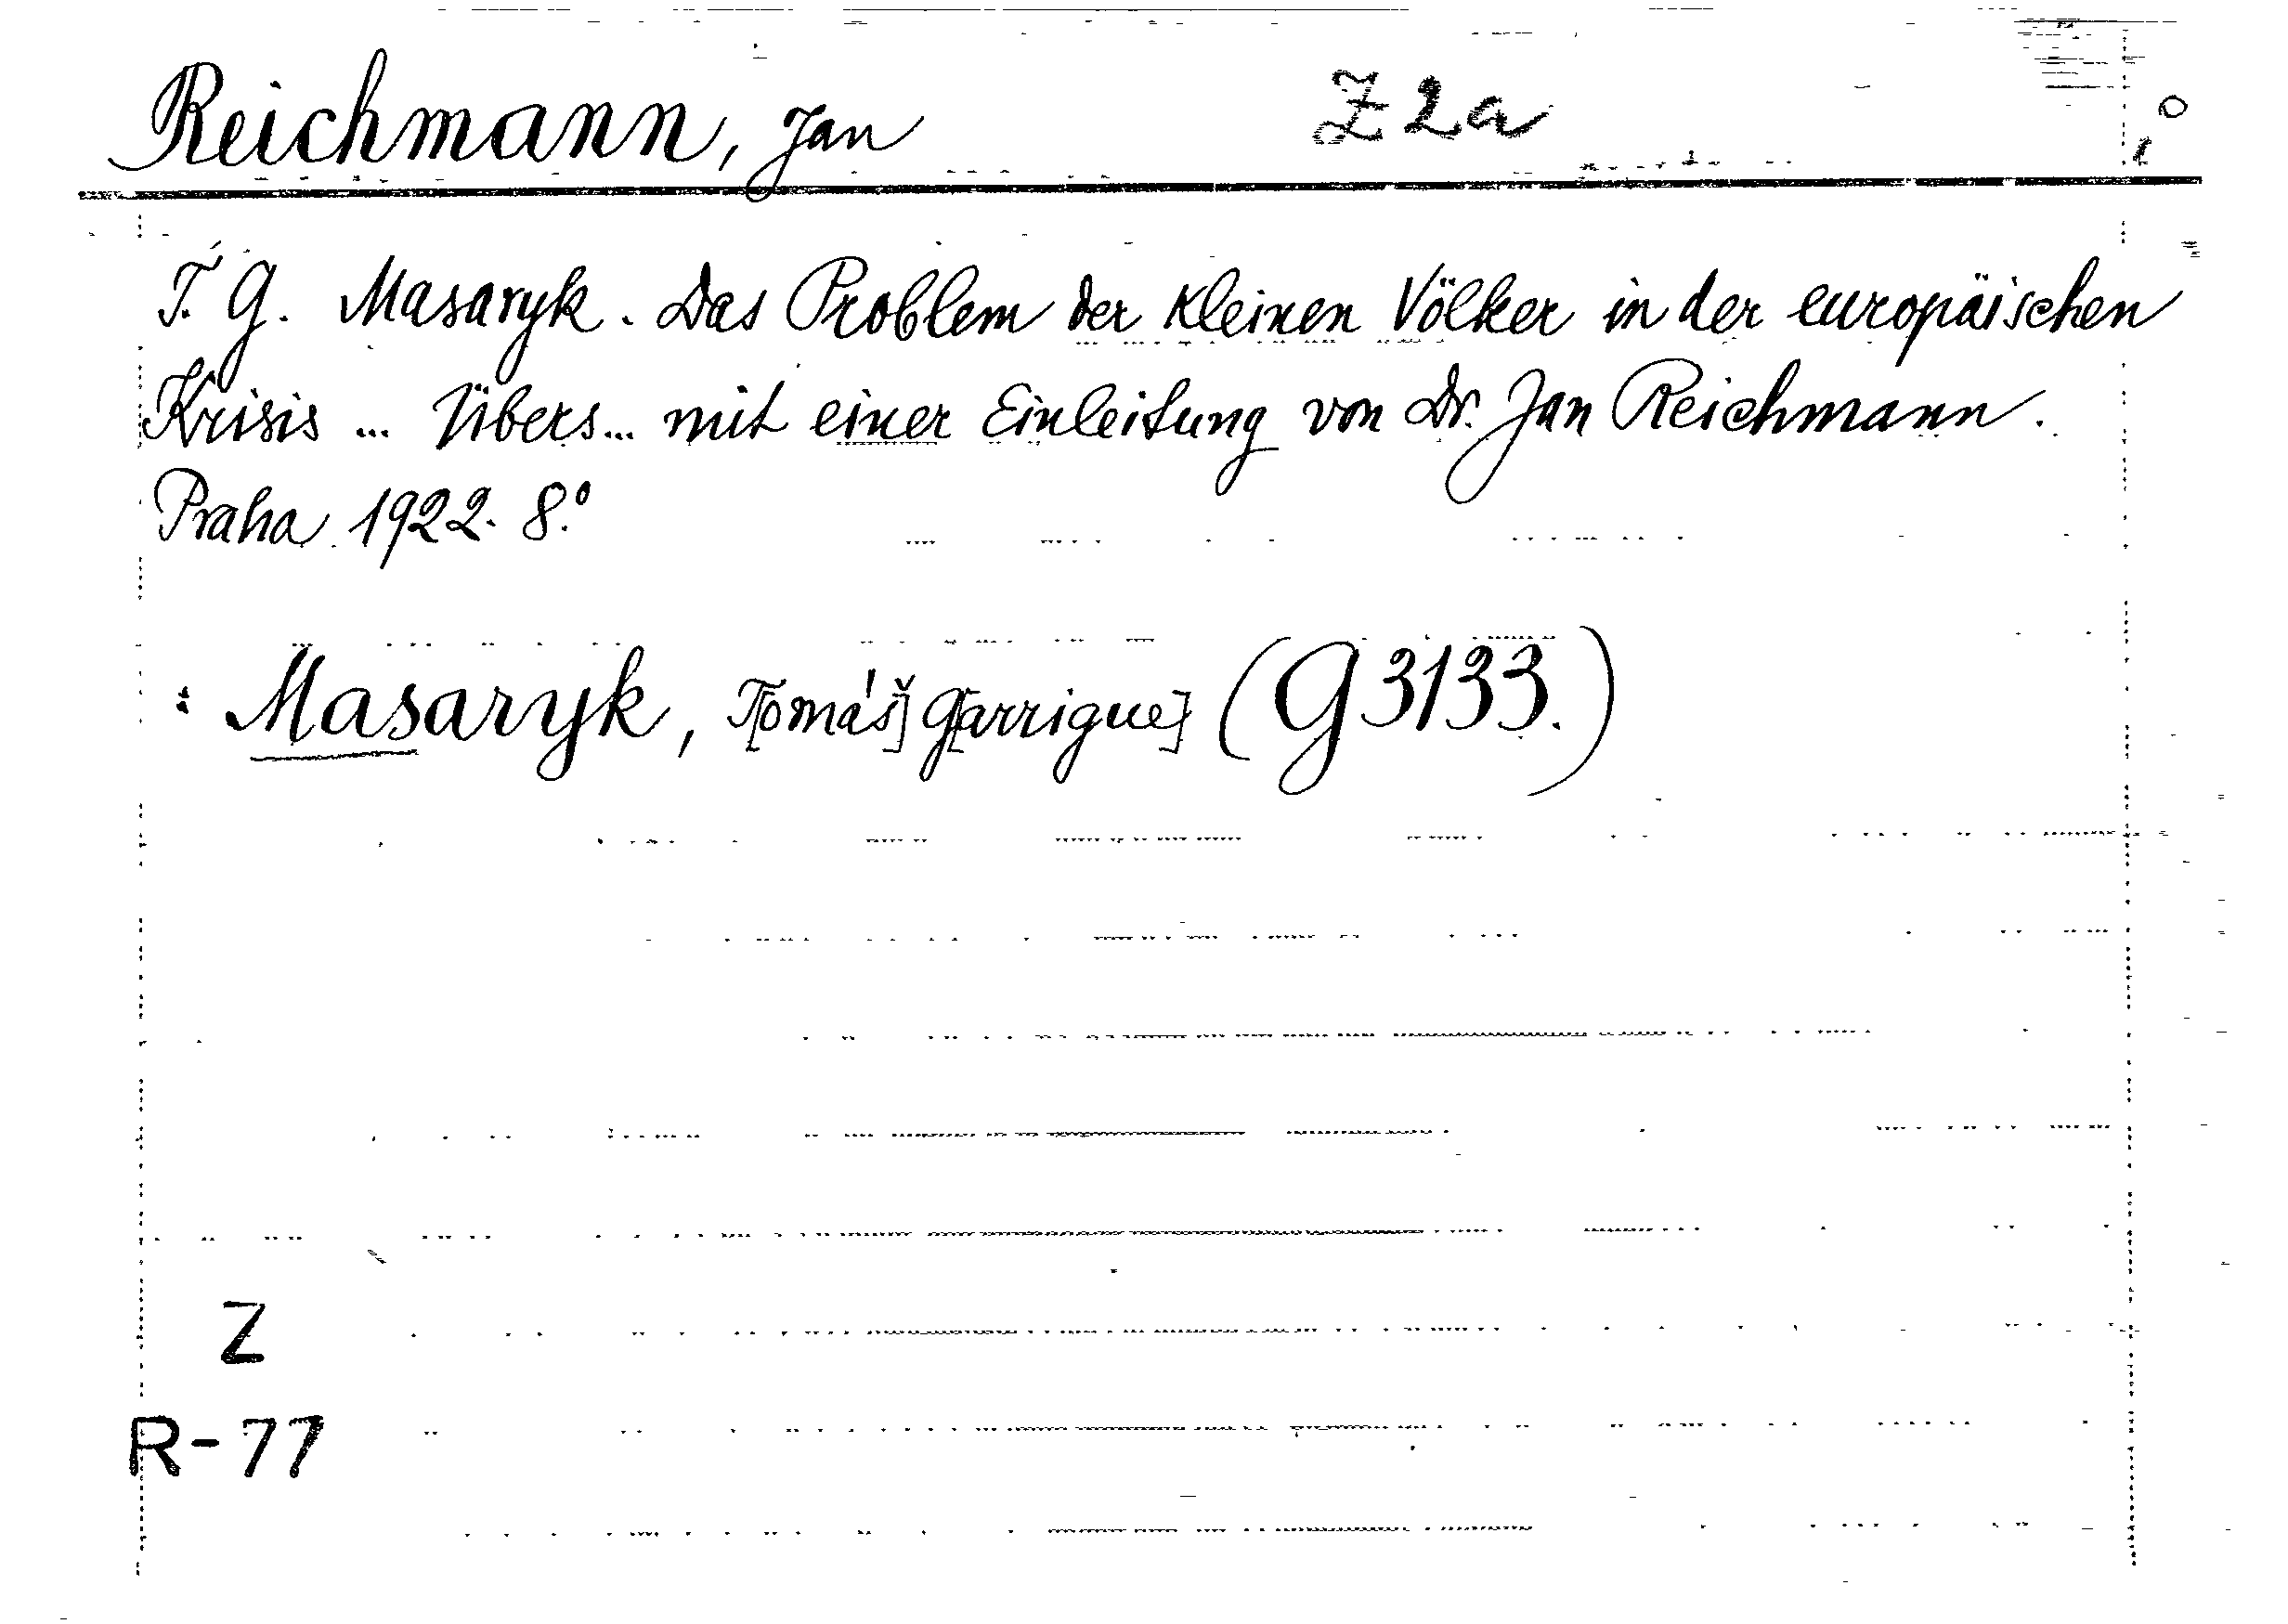 Reichmann, Jan Z 2a
T. G. Masaryk. Das Problem der kleinen Völker in der europäischen
Krisis ... Übers... mit einer Einleitung von Dr. Jan Reichmann.
Praha 1922. 8.°
: Masaryk, T[omáš] G[arrigue] (G 3133.)
Z
R-77